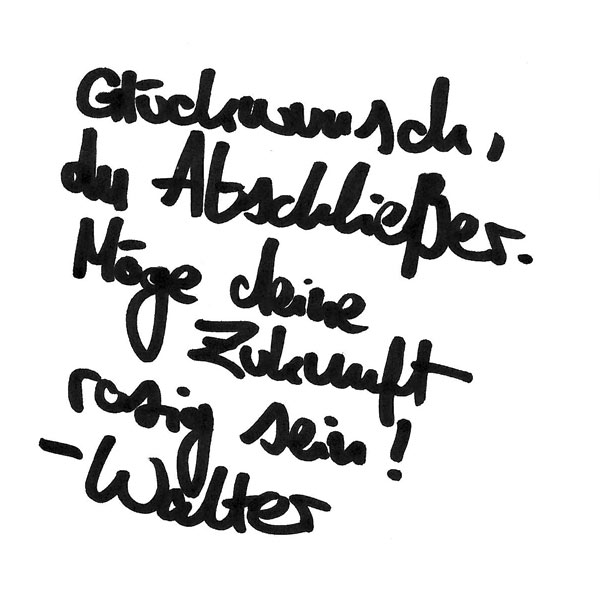 Glückwunsch,
du Abschließer.
Möge deine
Zukunft
rosig sein!
- Walter